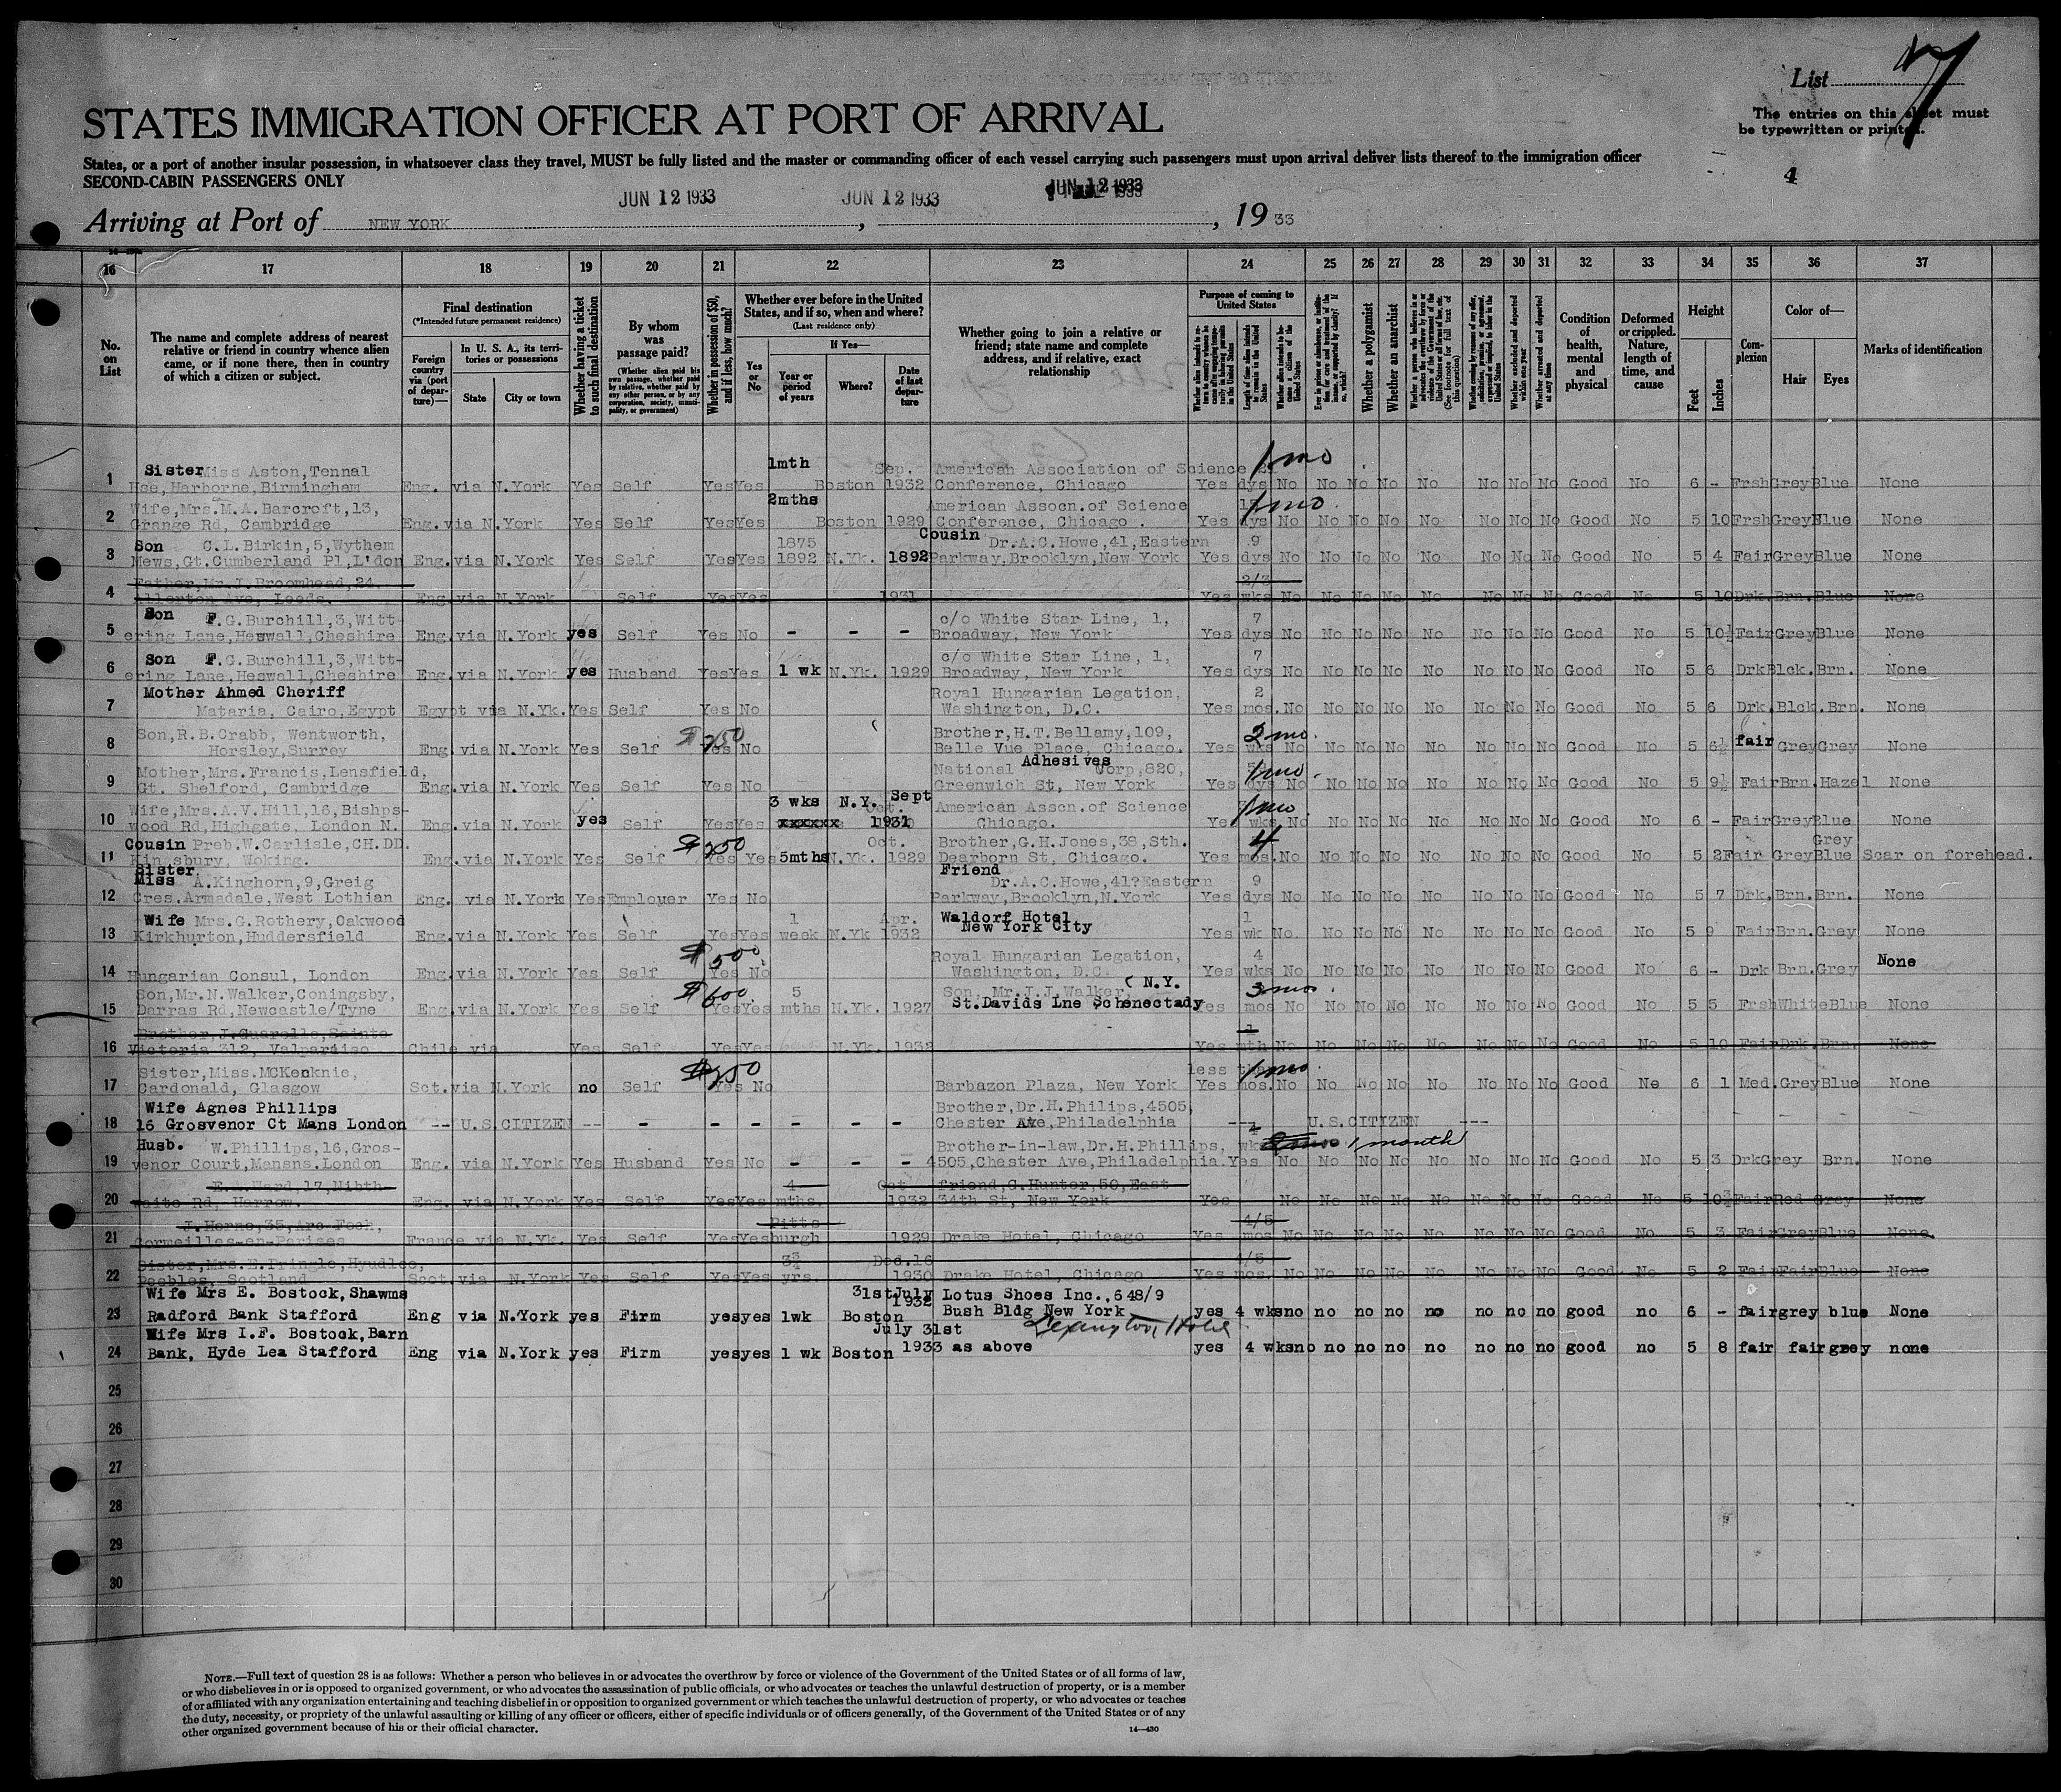 List
STATES IMMIGRATION OFFICER AT PORT OF ARRIVAL
The entries on this sheet must
be typewritten or printed.
States, or a port of another insular possession, in whatsoever class they travel, MUST be fully listed and the master or commanding officer of each vessel carrying such passengers must upon arrival deliver lists thereof to the immigration officer
SECOND-CABIN PASSENGERS ONLY
4
JUN 12 1933 JUN 12 1933 JUN 12 1933
Arriving at Port of NEW YORK , , 19 33
16 17 18 19 20 21 22 23 24 25 26 27 28 29 30 31 32 33 34 35 36 37
No. on List
The name and complete address of nearest relative or friend in country whence alien came, or if none there, then in country of which a citizen or subject.
Final destination
(*Intended future permanent residence)
Foreign country via (port of departure)—
In U. S. A., its territories or possessions
State City or town
Whether having a ticket to such final destination
By whom was passage paid?
(Whether alien paid his own passage, whether paid by relative, whether paid by any other person, or by any corporation, society, municipality, or government)
Whether in possession of $50, and if less, how much?
Whether ever before in the United States, and if so, when and where?
(Last residence only)
Yes or No
If Yes—
Year or period of years Where? Date of last departure
Whether going to join a relative or friend; state name and complete address, and if relative, exact relationship
Purpose of coming to United States
Length of time alien intends to remain in the United States
Whether alien intends to become a citizen of the United States
Whether a polygamist
Whether an anarchist
Whether excluded and deported within one year
Whether arrested and deported at any time
Condition of health, mental and physical
Deformed or crippled. Nature, length of time, and cause
Height
Feet Inches
Complexion
Color of—
Hair Eyes
Marks of identification
1mth Sep. American Association of Science 1mo
1 Sister Miss Aston, Tennal
Hse, Harborne, Birmingham Eng. via N.York Yes Self Yes Yes Boston 1932 Conference, Chicago Yes dys No No No No No No No No Good No 6 - Frsh Grey Blue None
2mths American Assocn.of Science 1mo
2 Wife, Mrs.M.A.Barcroft,13,
Grange Rd, Cambridge Eng.via N.York Yes Self Yes Yes Boston 1929 Conference, Chicago. Yes dys No No No No No No No No Good No 5 10 Frsh Grey Blue None
Cousin
3 Son C.L.Birkin,5,Wythem 1875 Dr.A.C.Howe,41,Eastern 9
Mews,Gt.Cumberland Pl,L'don Eng.via N.York Yes Self Yes Yes 1892 N.Yk. 1892 Parkway,Brooklyn,New York Yes dys No No No No No No No No Good No 5 4 Fair Grey Blue None
4 Father,Mr.J.Broomhead,24, 2/3
Allerton Ave, Leeds. Eng.via N.York Self Yes Yes 1931 Yes wks No No No No No No No No Good No 5 10 Drk. Brn. Blue None
5 Son F.G.Burchill,3,Witt- c/o White Star Line, 1, 7
ering Lane,Heswall,Cheshire Eng.via N.York yes Self Yes No - - - Broadway, New York Yes dys No No No No No No No No Good No 5 10½ Fair Grey Blue None
6 Son F.G.Burchill,3,Witt- c/o White Star Line, 1, 7
ering Lane,Heswall,Cheshire Eng.via N.York yes Husband Yes Yes 1 wk N.Yk. 1929 Broadway, New York Yes dys No No No No No No No No Good No 5 6 Drk Blck. Brn. None
7 Mother Ahmed Cheriff Royal Hungarian Legation, 2
Mataria, Cairo,Egypt Egypt via N.Yk. Yes Self Yes No Washington, D.C. Yes mos. No No No No No No No No Good No 5 6 Drk. Blck. Brn. None
8 Son,R.B.Crabb, Wentworth, $250 Brother,H.T.Bellamy,109, 2mo.
Horsley,Surrey Eng.via N.York Yes Self Yes No Belle Vue Place, Chicago. Yes wks No No No No No No No No Good No 5 6½ fair Grey Grey None
Adhesives
9 Mother,Mrs.Francis,Lensfield, National Corp,820, 1mo.
Gt. Shelford, Cambridge Eng.via N.York Yes Self Yes No Greenwich St, New York Yes dys No No No No No No No No Good No 5 9½ Fair Brn. Hazel None
3 wks N.Y. Sept
10 Wife,Mrs.A.V.Hill,16,Bishps- American Asscn.of Science 1mo
wood Rd,Highgate, London N. Eng.via N.York yes Self Yes Yes xxxxxx 1931 Chicago. Yes wks No No No No No No No No Good No 6 - Fair Grey Blue None
11 Cousin Preb.W.Carlisle,CH.DD. $250 Oct. Brother,G.H.Jones,38,Sth. 4 Grey
Kingsbury, Woking. Eng.via N.York Yes Self Yes Yes 5mths N.Yk. 1929 Dearborn St, Chicago. Yes mos. No No No No No No No No Good No 5 2 Fair Grey Blue Scar on forehead.
Sister Friend
12 Miss A.Kinghorn,9,Greig Dr.A.C.Howe,41?Eastern 9
Cres.Armadale,West Lothian Eng. via N.York Yes Employer Yes No Parkway,Brooklyn,N.York Yes dys No No No No No No No No Good No 5 7 Drk. Brn. Brn. None
13 Wife Mrs.G.Rothery,Oakwood 1 Apr. Waldorf Hotel 1
Kirkhurton,Huddersfield Eng.via N.York Yes Self Yes Yes week N.Yk 1932 New York City Yes wk No. No No No No No No No Good No 5 9 Fair Brn. Grey None
$500 Royal Hungarian Legation, 4
14 Hungarian Consul, London Eng.via N.York Yes Self Yes No Washington, D.C. Yes wks No No No No No No No No Good No 6 - Drk Brn. Grey None
15 Son,Mr.N.Walker,Coningsby, $600 5 Son, Mr.J.J.Walker, ( N.Y. 3mos.
Darras Rd,Newcastle/Tyne Eng.via N.York Yes Self Yes Yes mths N.Yk. 1927 St.Davids Lne Schenectady Yes mos No No No No No No No No Good No 5 5 Frsh White Blue None
16 Brother,J.Guarello,Sainte 1
Victoria 312, Valparaiso Chile via Yes Self Yes Yes N.Yk. 1932 Yes mth No No No No No No No No Good No 5 10 Fair Drk. Brn. None
17 Sister,Miss.McKenknie, $250 less 1mo.
Cardonald, Glasgow Sct.via N.York no Self Yes No Barbazon Plaza, New York Yes mos. No No No No No No No No Good No 6 1 Med. Grey Blue None
18 Wife Agnes Phillips Brother,Dr.H.Philips,4505,
16 Grosvenor Ct Mans London -- U.S.CITIZEN -- - - - - - - Chester Ave,Philadelphia -- U.S.CITIZEN ---
19 Husb. W.Phillips,16,Gros- Brother-in-law,Dr.H.Phillips, wks 1 month
venor Court,Manans.London Eng. via N.York Yes Husband Yes No - - - 4505,Chester Ave,Philadelphia. Yes No No No No No No No No Good No 5 3 Drk Grey Brn. None
20 E.A.Ward,17,Nibth- 4 Oct friend,G.Hunter,50,East
waite Rd, Harrow. Eng. via N.York Yes Self Yes Yes mths. 1932 34th St, New York Yes No No No No No No No No Good No 5 10¾ Fair Red Grey None
21 J.Horne,35,Arc Foch, Pitts- 4/5
Cormeilles-en-Parises France via N.Yk. Yes Self Yes Yes burgh 1929 Drake Hotel, Chicago Yes mos No No No No No No No No Good No 5 3 Fair Grey Blue None.
22 Sister,Mrs.E.Pringle,Hyudlee, 3¾ Dec.16 4/5
Peebles, Scotland Scot.via N.York Yes Self Yes Yes yrs. 1930 Drake Hotel, Chicago Yes mos. No No No No No No No No Good No 5 2 Fair Fair Blue None
23 Wife Mrs E. Bostock, Shawms 31st July 1932 Lotus Shoes Inc., 648/9
Radford Bank Stafford Eng via N.York yes Firm yes yes 1wk Boston Bush Bldg New York yes 4 wks no no no no no no no no good no 6 - fair grey blue None
24 Wife Mrs I.F. Bostock, Barn July 31st Lexington Hotel
Bank, Hyde Lea Stafford Eng via N.York yes Firm yes yes 1 wk Boston 1933 as above yes 4 wks no no no no no no no no good no 5 8 fair fair grey none
25
26
27
28
29
30
NOTE.—Full text of question 28 is as follows: Whether a person who believes in or advocates the overthrow by force or violence of the Government of the United States or of all forms of law,
or who disbelieves in or is opposed to organized government, or who advocates the assassination of public officials, or who advocates or teaches the unlawful destruction of property, or is a member
of or affiliated with any organization entertaining and teaching disbelief in or opposition to organized government or which teaches the unlawful destruction of property, or who advocates or teaches
the duty, necessity, or propriety of the unlawful assaulting or killing of any officer or officers, either of specific individuals or of officers generally, of the Government of the United States or of any
other organized government because of his or their official character.
14—430